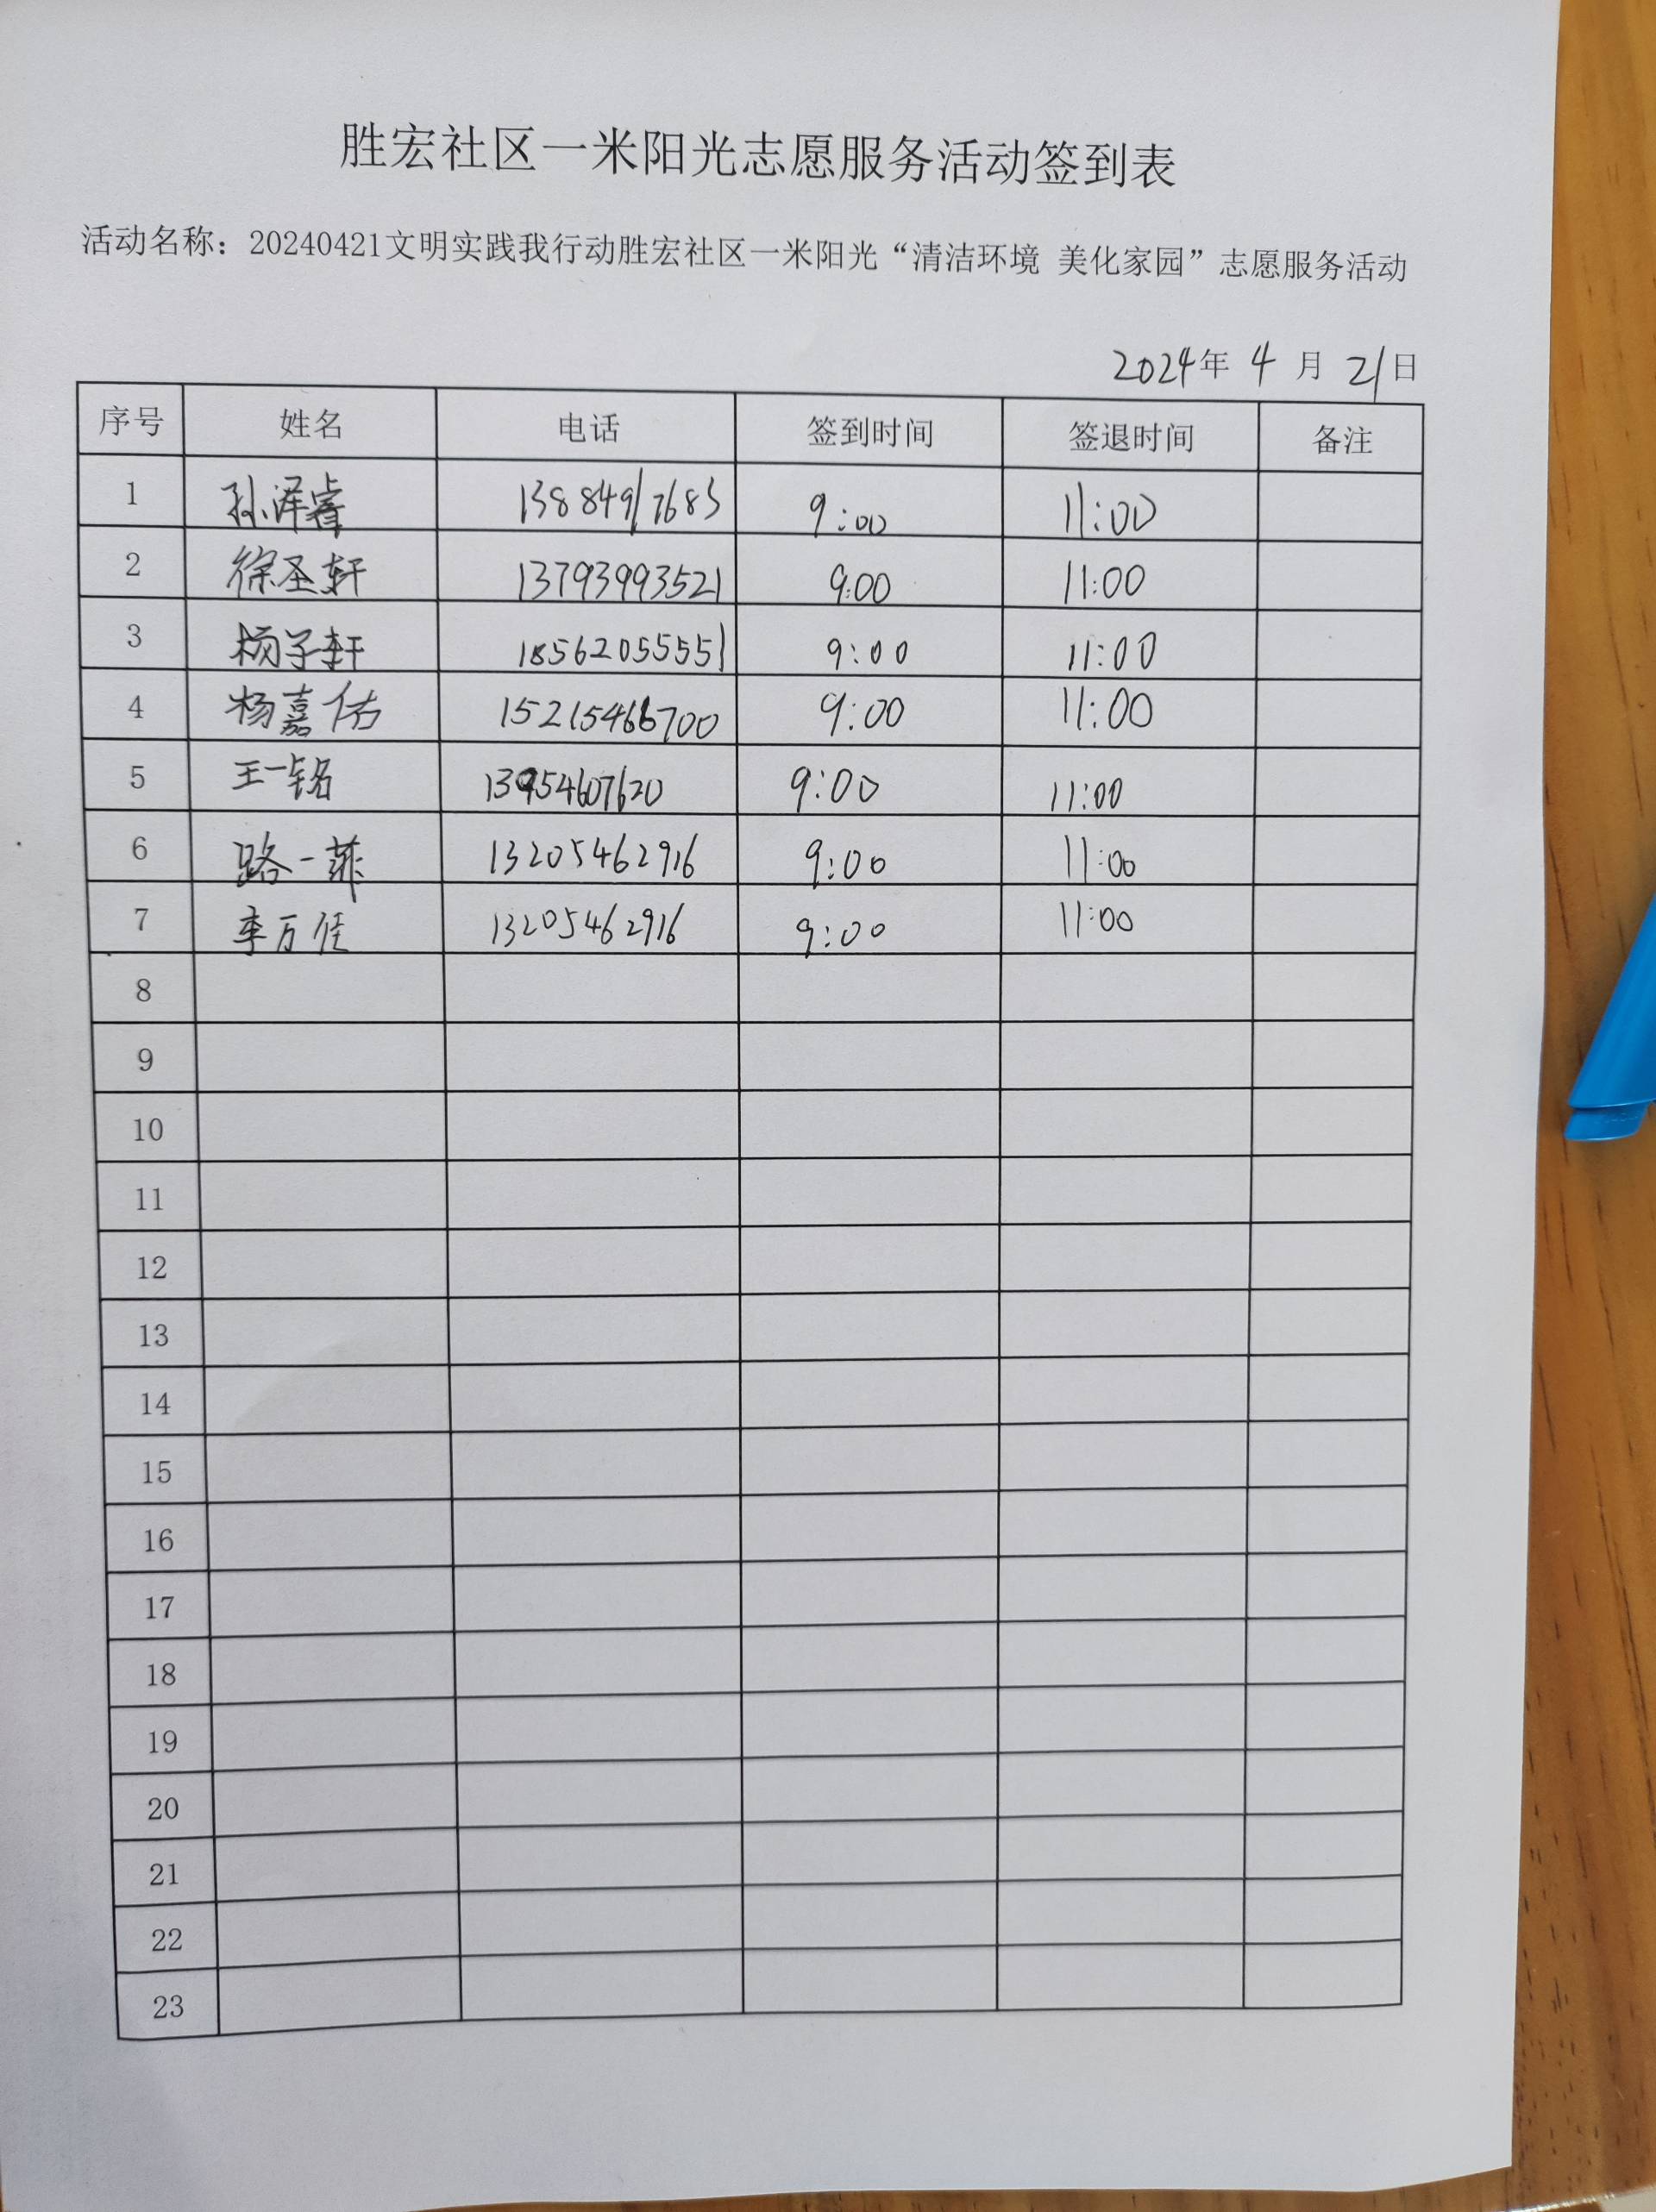 胜宏社区一米阳光志愿服务活动签到表
活动名称：20240421文明实践我行动胜宏社区一米阳光“清洁环境 美化家园”志愿服务活动
2024年 4 月 21日
序号 姓名 电话 签到时间 签退时间 备注
1 孙泽睿 13884917683 9:00 11:00
2 徐圣轩 13793993521 9:00 11:00
3 杨子轩 18562055551 9:00 11:00
4 杨嘉佑 15215466700 9:00 11:00
5 王一铭 13954607620 9:00 11:00
6 路一菲 13205462916 9:00 11:00
7 李万佳 13205462916 9:00 11:00
8
9
10
11
12
13
14
15
16
17
18
19
20
21
22
23